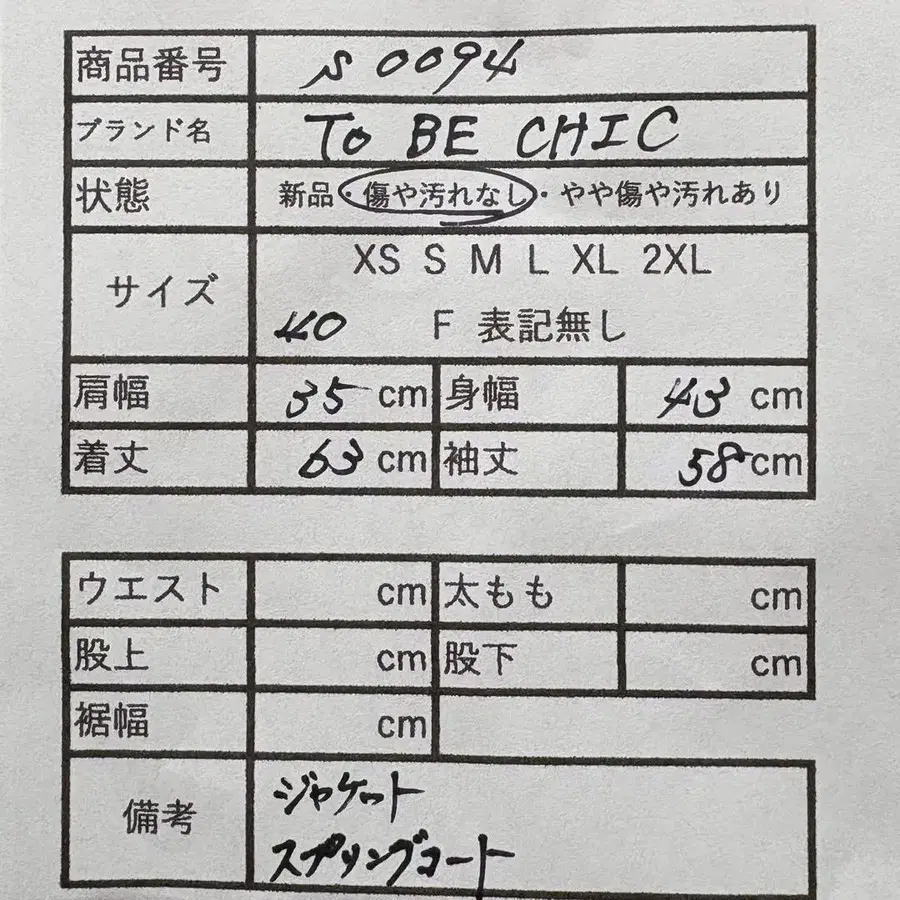 商品番号 s 0094
ブランド名 TO BE CHIC
状態 新品・傷や汚れなし・やや傷や汚れあり
サイズ XS S M L XL 2XL
40 F 表記無し
肩幅 35 cm 身幅 43 cm
着丈 63 cm 袖丈 58 cm
ウエスト cm 太もも cm
股上 cm 股下 cm
裾幅 cm
備考 ジャケット
スプリングコート